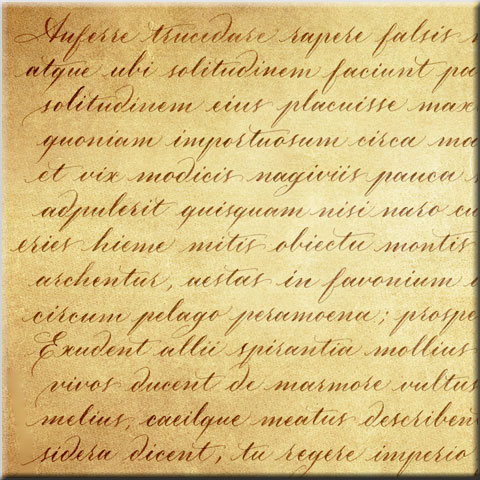 Auferre trucedare rapere falsis
atque ubi solitudinem faciunt pa
solitudinem eius placuisse max
quoniam importuosum circa ma
et vix modicis nagiviis pauca
adpulerit quisquam nisi naro cu
eries hieme mitis obiectu montis
archentur, aestas in favonium
circum pelago peramoena; prospe
Exudent allii spirantia mollius
vivos ducent de marmore vultus
melius, caeilque meatus describen
sidera dicent, tu regere imperio